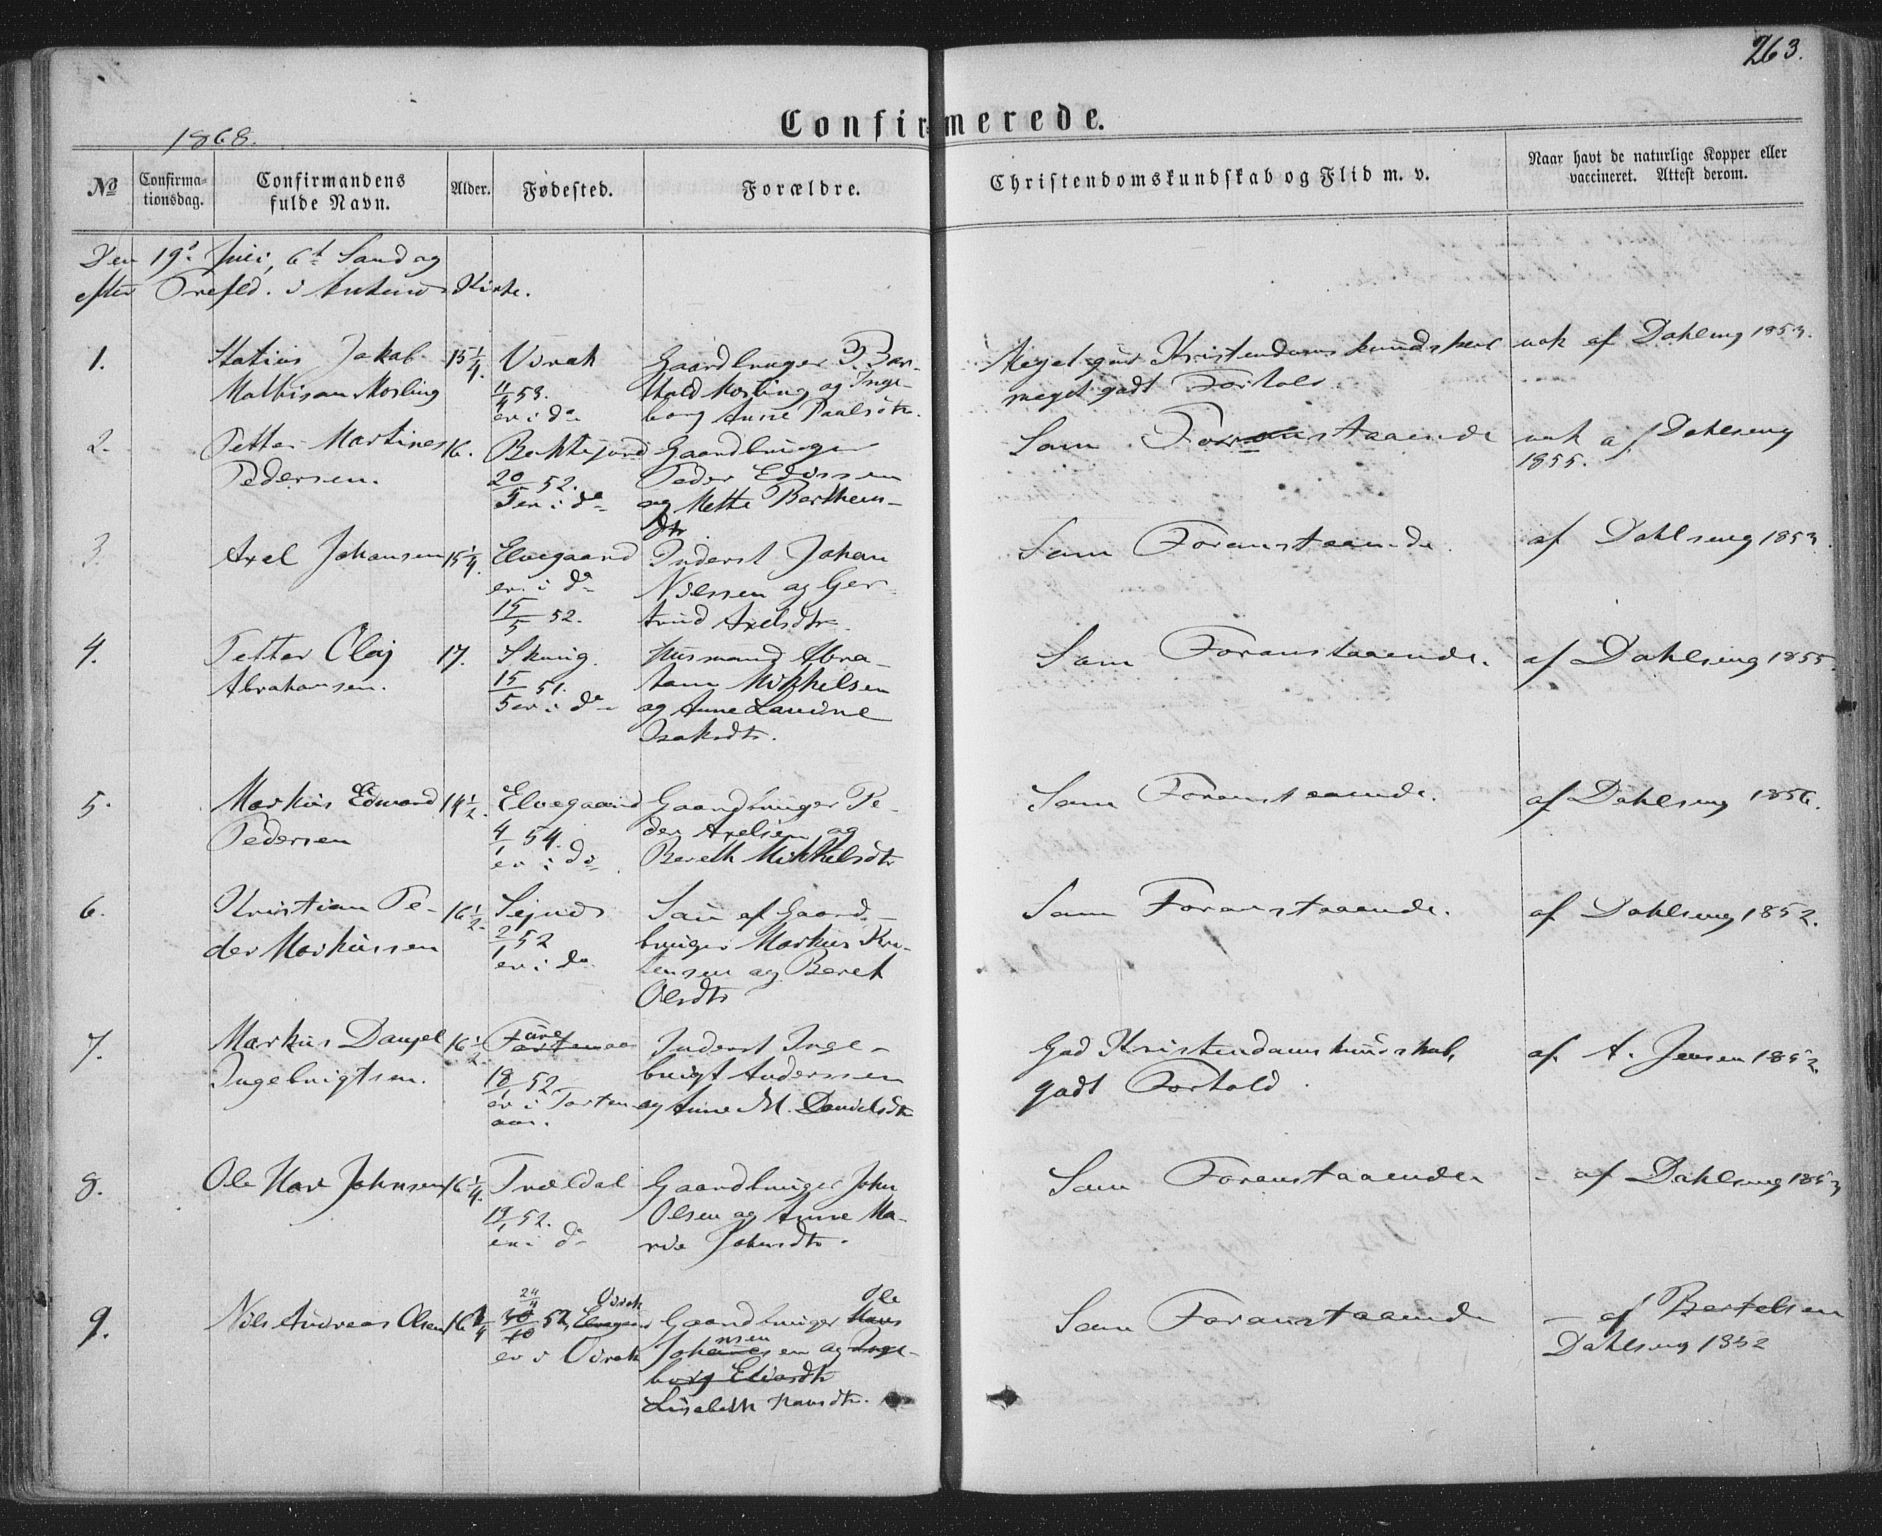 263.
Confirmerede.
1868.
№
Confirma-
tionsdag.
Confirmandens
fulde Navn.
Alder.
Fødested.
Forældre.
Christendomskundskab og Flid m. v.
Naar havt de naturlige Kopper eller
vaccineret. Attest derom.
Den 19de Juli, 6te Søndag
efter Trefld. i Ankenes Kirke.
1.
Statius Jakob
Mathisen Norling
15 1/4.
Virak
11/4 53.
er i do
Gaardbruger P. Bar-
thold Norling og Inge-
borg Anne Paulsdtr.
Meget god Kristendoms kundskab
meget godt Forhold
vak af Dahlseng 1853.
2.
Petter Martines
Pedersen.
16.
Bektejord
20/5 52.
er i do
Gaardbruger
Peder Edissen
og Mette Berthens-
dtr
Som Foranstaaende
vak af Dahlseng
1855.
3.
Axel Johansen
15 1/4.
Elvegaard
er i do
15/5 52.
Inderst Johan
Nilssen og Ger-
trud Axelsdtr.
Som Foranstaaende.
af Dahlseng 1853.
4.
Petter Olaj
Abrahamsen.
17.
Skavig.
15/5 51.
er i do
Husmand Abra-
ham Mikkelsen
og Anne Lavine
Isaksdtr.
Som Foranstaaende.
af Dahlseng 1855.
5.
Markus Edward
Pedersen
14 1/2.
Elvegaard
4/1 54.
er i do
Gaardbruger Pe-
der Axelsen og
Bereth Mikkelsdtr
Som Foranstaaende.
af Dahlseng 1856.
6.
Kristian Pe-
der Markussen
16 1/2.
Sejnes
2/1 52
er i do
Søn af Gaard-
bruger Markus Kri-
stensen og Beret
Olsdtr
Som Foranstaaende.
af Dahlseng 1852.
7.
Markus Danjel
Ingebrigtsen.
16 1/2
18/1 52
er i Torten-
aas.
Inderst Inge-
brigt Anderssen
og Anne M. Danielsdtr
God Kristendomskundskab,
godt Forhold.
af A. Jensen 1852.
8.
Ole Hov Johnsen
16 1/4.
Trældal
19/1 52.
er i do
Gaardbruger John
Olsen og Anne Ma-
rie Johnsdtr.
Som Foranstaaende
- af Dahlseng 1853
9.
Nils Andreas Olsen
16 1/4
24/4 Virak
30/10 52, Elvegaard
er i Virak
Ole
Gaardbruger Hans
Johannesen og Inge-
borg Elisdtr
Lisabeth Hansdtr.
Som Foranstaaende
- af Bertelsen
Dahlseng 1852